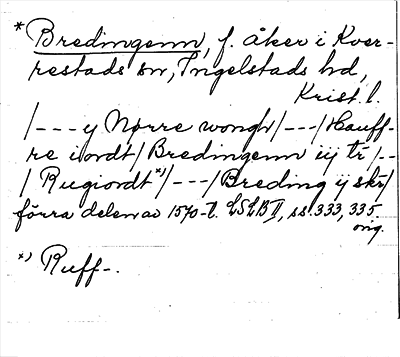 * Bredingenn, f. åker i Kver-
restads sn, Ingelstads hd,
Krist. l.
/---y Nørre wongh/---/Hauff-
re iordt/Bredingenn iij tr/--
/Rugiordt*)/---/Breding ij skr/
förra delen av 1570-t. LSLB II, ss. 333, 335.
orig.
*) Ruff-.